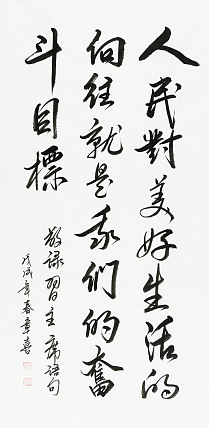 人民對美好生活的
向往就是我們的奮
斗目標
敬録習主席語句
戊戌年春章喜